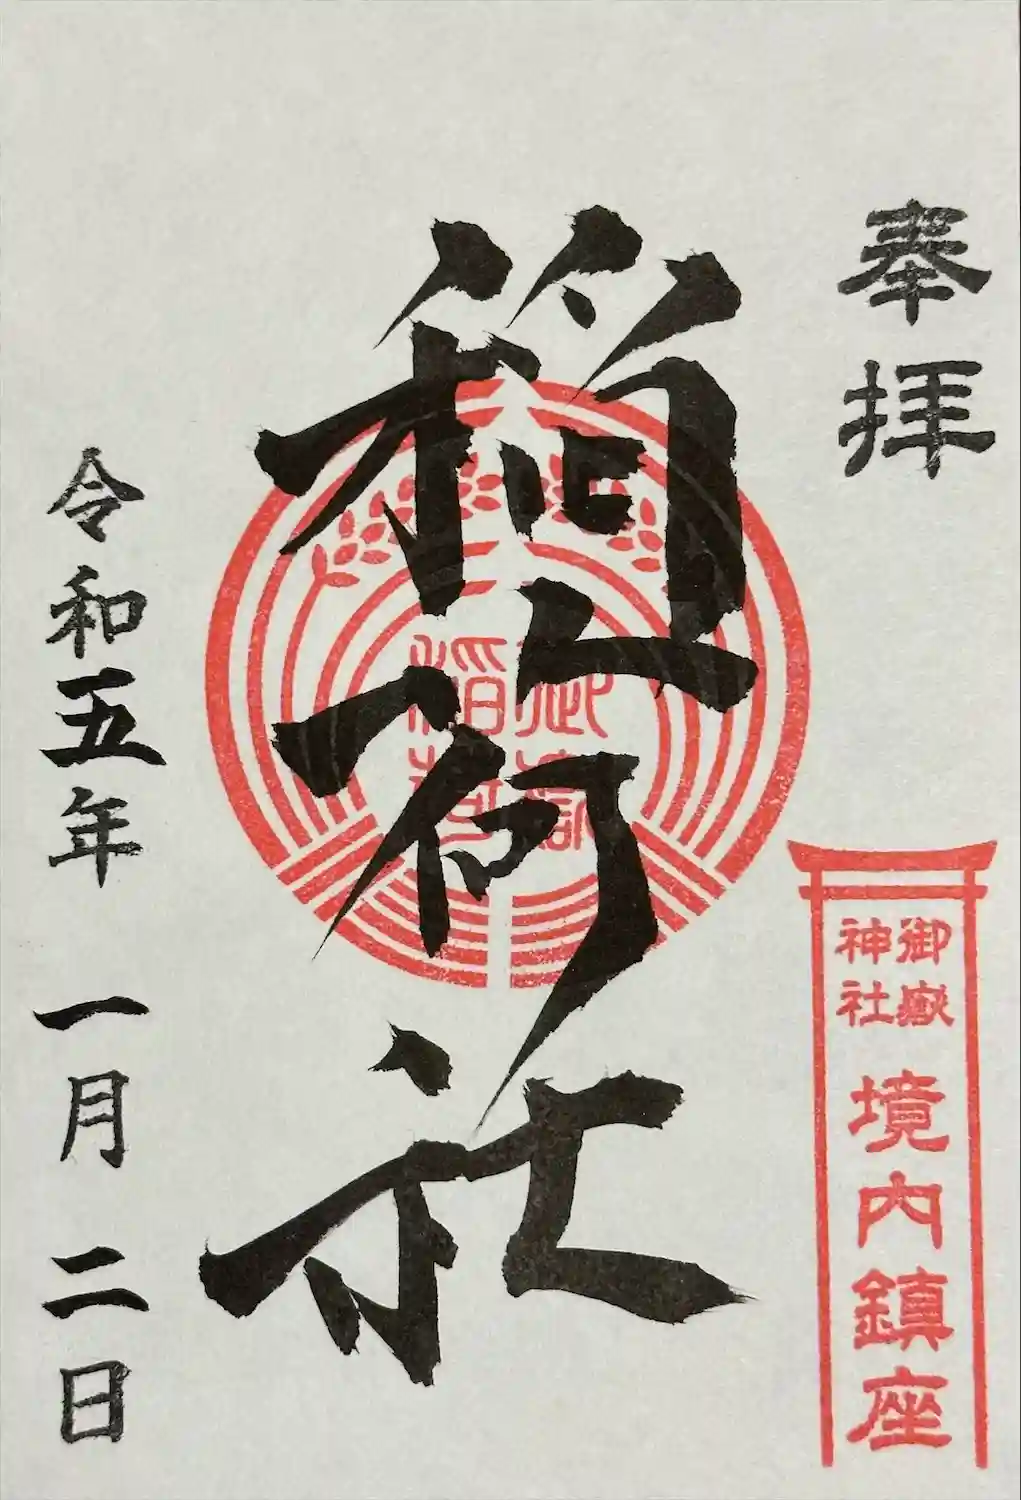 奉拝
御嶽
神社
境内鎮座
稲荷社
御嶽
稲荷
令和五年 一月二日